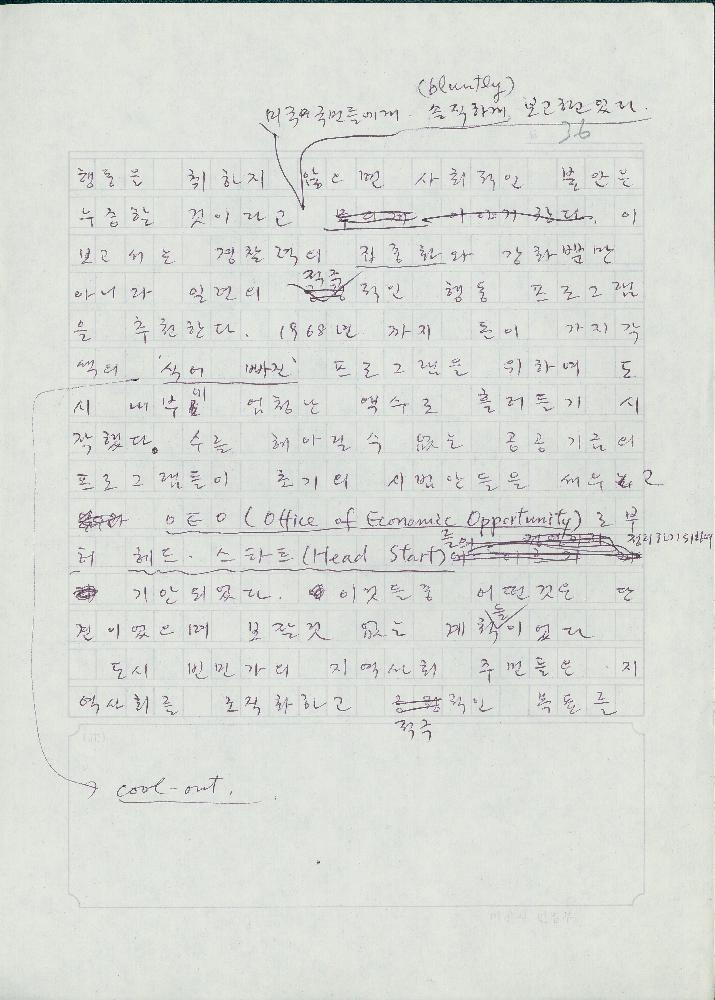 (bluntly)
미국국민들에게 솔직하게 보고하고 있다.
36
행동을 취하지 않으면 사회적인 불안은
누증할 것이라고 이
보고서는 경찰력의 집중화와 강화뿐만
적극
아니라 일련의 적인 행동 프로그램
을 추천한다. 1968년 까지 돈이 가지각
색의 '식어 빠진' 프로그램을 위하여 도
시 내부에 엄청난 액수로 흘러들기 시
작했다. 수를 헤아릴 수 없는 공공기금의
프로그램들이 초기의 시범안들을 세우고
OEO (Office of Economic Opportunity)로 부
터 헤드·스타트(Head Start)
기안되었다. 이것들중 어떤것은 단
들
편이었으며 보잘것 없는 계획이었다
도시 빈민가의 지역사회 주민들은 지
역사회를 조직화하고 적인 목표를
적극
cool-out.